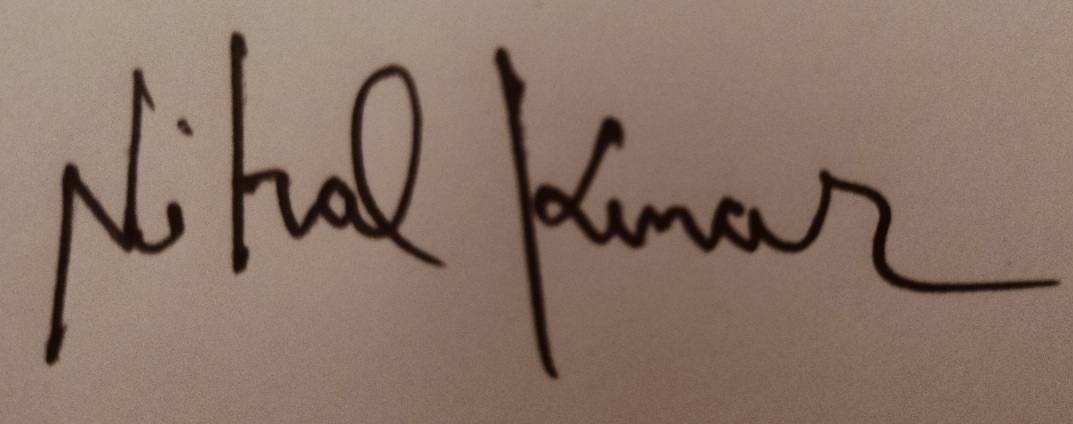 Nihal Kumar